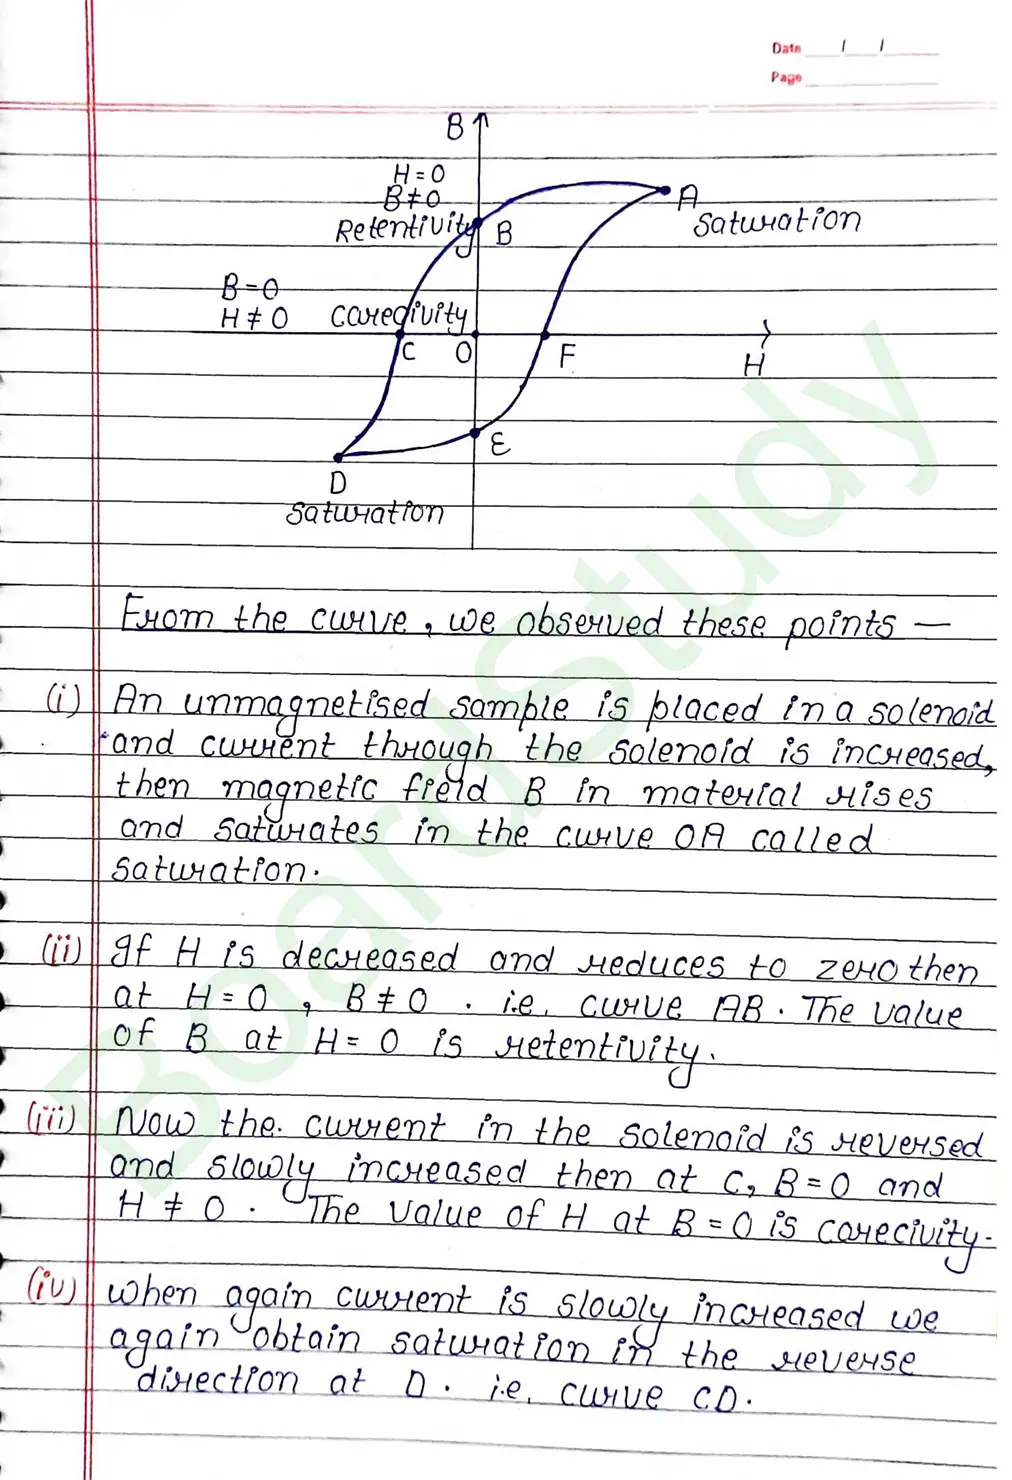 Date / /
Page
B
H = 0
B ≠ 0
Retentivity
B
A
Saturation
B = 0
H ≠ 0
Corecivity
C
O
F
H
E
D
Saturation
From the curve, we observed these points —
(i) An unmagnetised sample is placed in a solenoid
and current through the solenoid is increased,
then magnetic field B in material rises
and saturates in the curve OA called
saturation.
(ii) If H is decreased and reduces to zero then
at H = 0 , B ≠ 0 . i.e. curve AB. The value
of B at H = 0 is retentivity.
(iii) Now the. current in the solenoid is reversed
and slowly increased then at C, B = 0 and
H ≠ 0 . The value of H at B = 0 is corecivity.
(iv) when again current is slowly increased we
again obtain saturation in the reverse
direction at D . i.e. curve CD.
BoardStudy